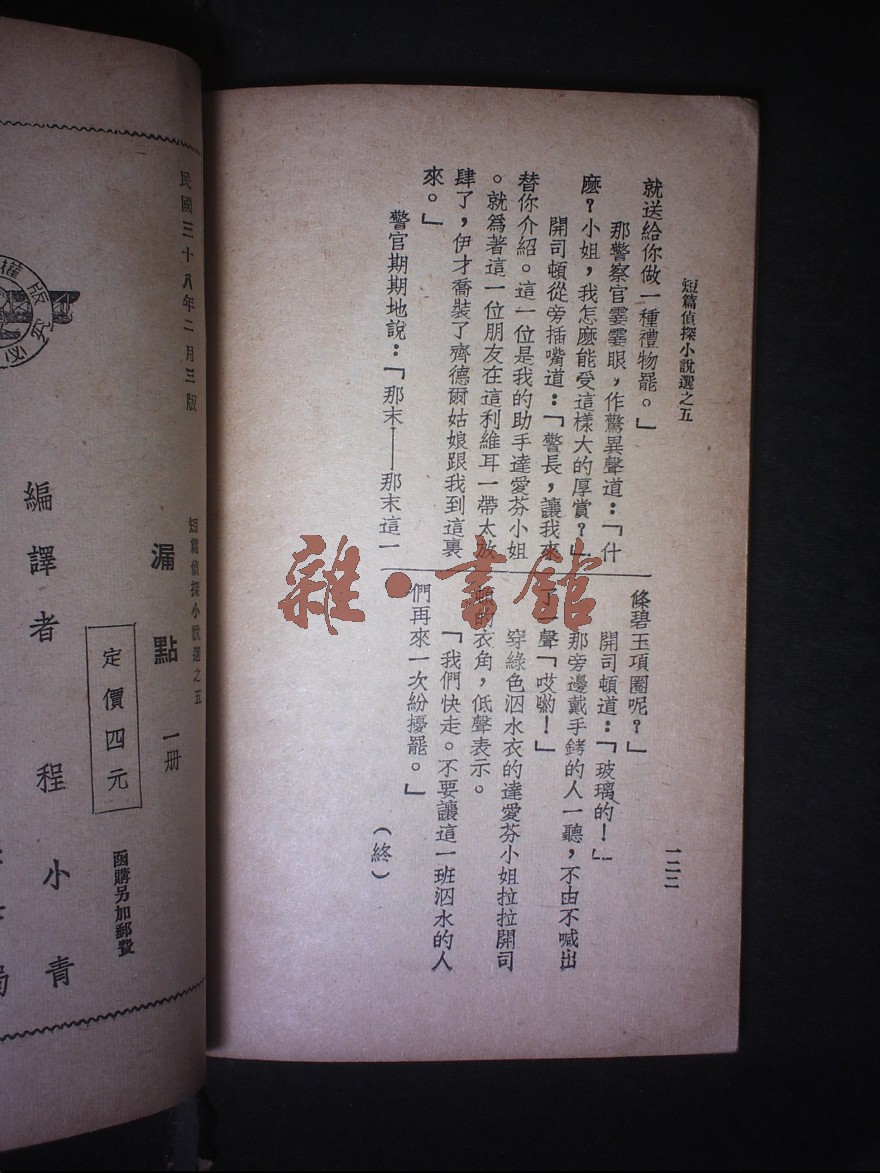 短篇偵探小說選之五
一二二
就送給你做一種禮物罷。」
那警察官霎霎眼，作驚異聲道：「什
麼？小姐，我怎麼能受這樣大的厚賞？」
開司頓從旁插嘴道：「警長，讓我來
替你介紹。這一位是我的助手達愛芬小姐
。就爲著這一位朋友在這利維耳一帶太放
肆了，伊才喬裝了齊德爾姑娘跟我到這裏
來。」
警官期期地說：「那末——那末這一
條碧玉項圈呢？」
開司頓道：「玻璃的！」
那旁邊戴手銬的人一聽，不由不喊出
了一聲「哎喲！」
穿綠色泅水衣的達愛芬小姐拉拉開司
頓的衣角，低聲表示。
「我們快走。不要讓這一班泅水的人
們再來一次紛擾罷。」
（終）
雜·書館
民國三十八年二月三版
短篇偵探小說選之五
漏點 一册
定價四元
函購另加郵費
編譯者 程小青
版權
究
局